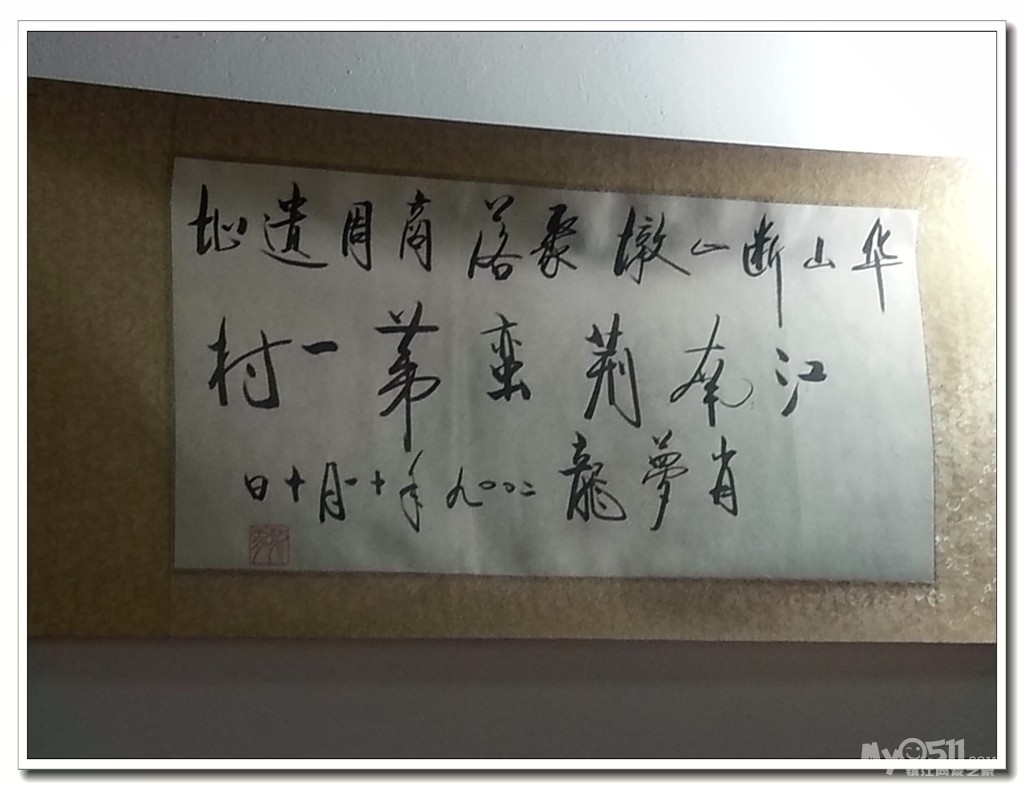 华山断山墩聚落商周遗址
江南荆蛮第一村
肖夢龍二〇〇九年十一月十日
My0511.com
镇江网友之家